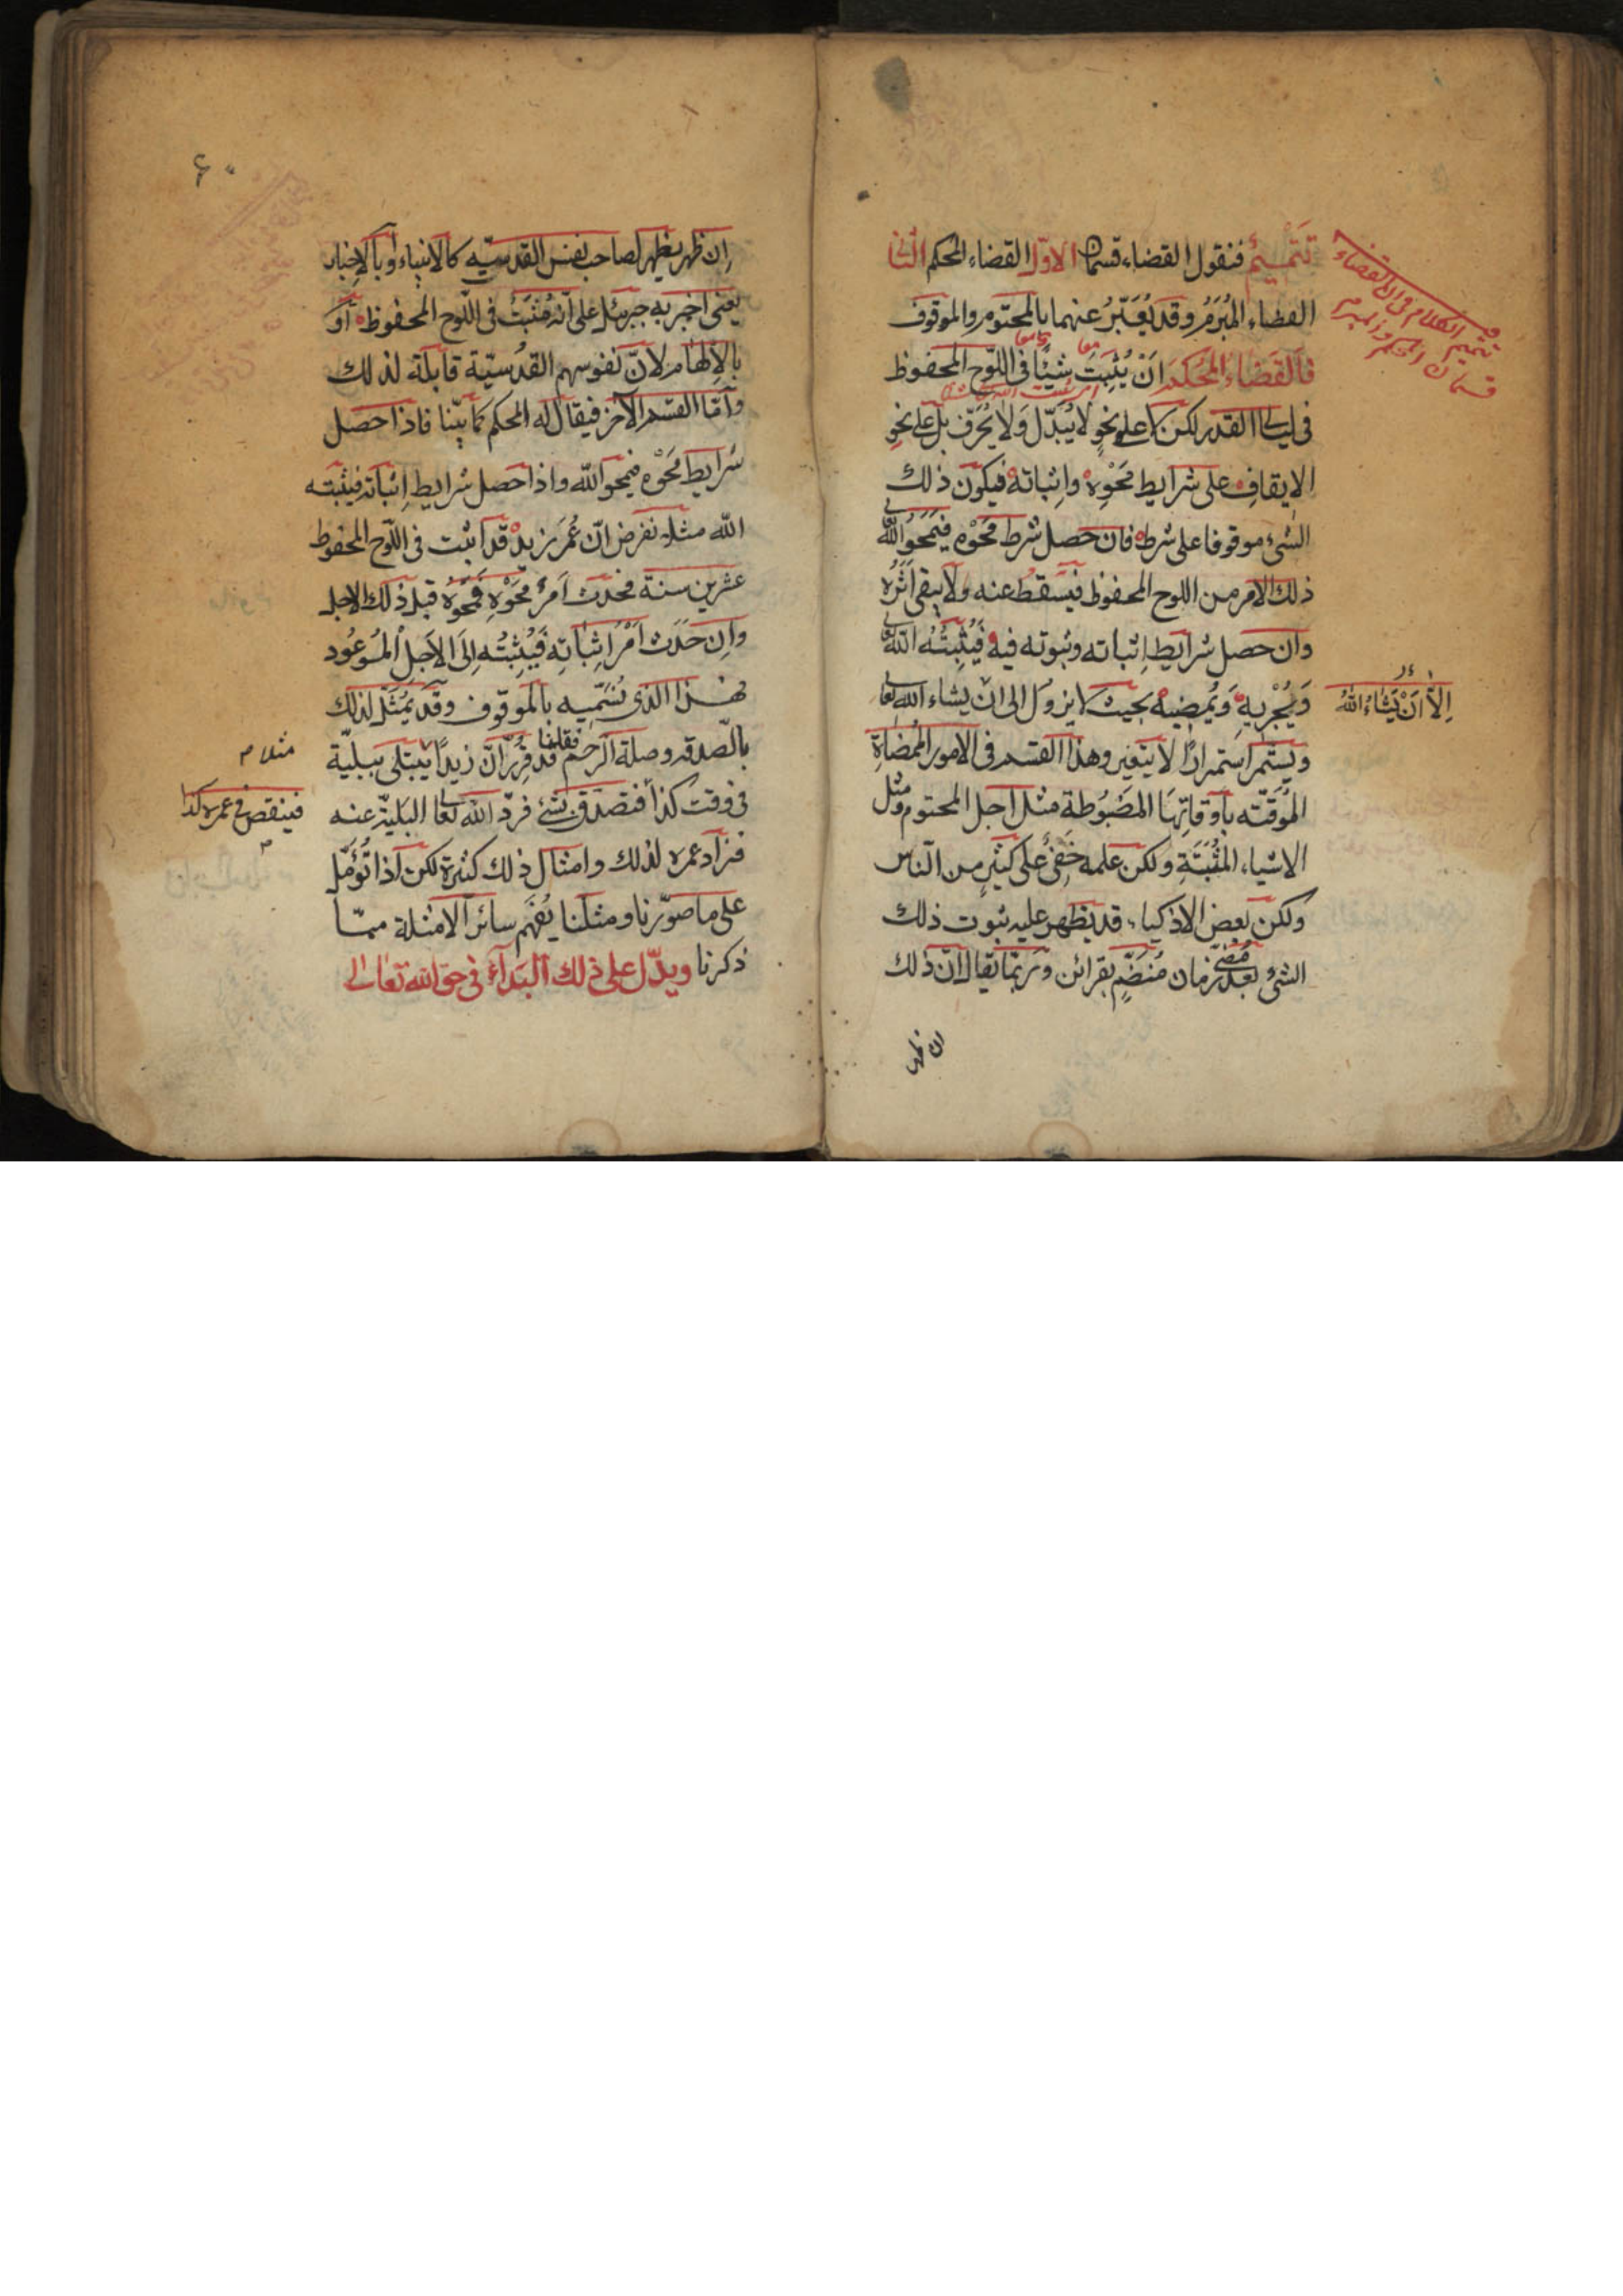 تَتْمِيمٌ فنقول القضاء قسمان الاوّل القضاء المحكم الثانى
القضاء المُبْرَمُ وقد يُعَبَّرُ عنهما بالمحتوم والموقوف
فالقضاء المُحْكَم اَنْ يُثْبِتَ شيئًا فى اللّوح المحفوظ
فى ليالى القدر لكن لا على نحوٍ لا يُبَدَّل وَلا يُحَرَّف بل على نحوِ
الايقافِ على شرايط مَحْوِه واِثباته فيكون ذلك
الشئ موقوفا على شرط فان حصل شرط مَحْوه فيَمْحُو اللّه
ذلك الامر من اللوح المحفوظ فيَسْقط عنه ولا يبقى اَثَرُه
وان حصل شرايط اِثباته وثبوته فيه فَيُثْبِتُه اللّه
وَيُجْرِيه وَيُمضيه بحيث لا يزول الى ان يشاء اللّه تعالى
ويستمرّ استمرارًا لا يتغير وهذا القسم فى الامور المُمضاةِ
المُوَقَّتَه باَوقاتِهَا المَضْبُوطة مثل اجل المحتوم ومثل
الاشياء المُثْبَتَةِ ولكن علمه خَفِىٌّ على كثيرٍ من الناس
ولكن بعض الاذكياء قد يظهر عليه ثبوت ذلك
الشئ بعد مُضِىّ زمان مُنضَمٍّ بقرائن وربّما يقال اَنّ ذلك
ان ظهر
تتميم الكلام فى ان القضاء
قسمان المحكم والمبرم
اِلّا اَنْ يَشاءَ اللّهُ
۶۰
اِن ظهر يظهر لصاحب نفس القدسيّه كالانبياء اَو بالاِخبار
يعنى اخبر به جبرئيل على اَنّه مُثْبَتٌ فى اللّوح المحفوظ اَو
بالاِلهام لانّ نفوسهم القُدسيّة قابلة لذلك
وامّا القسم الآخر فيقال له المحكم كما بيّنا فاذا حصل
شرايط مَحْوِه فيمحو اللّه واذا حصل شرايط اِثباته فيثبته
اللّه مثلا نفرض انّ عُمَر زيد قد اثبت فى اللّوح المحفوظ
عشرين سنة فحَدَث اَمرُ مَحْوِهِ فمَحَوَهُ قبل ذلك الاجل
واِن حَدَث اَمْرُ اِثباته فَيُثبِتُه اِلَى الاَجل المَوعُود
فهذا الذى نُسَمّيه بالموقوف وقد يُمَثّل لذلك
بالصّدقه وصلة الرّحم فقلنا قد قُرِّر اَنّ زيدًا يُبتلى ببليّة
فى وقت كذا فتصدق بشئ فردّ اللّه تعالى البليّة عنه
فزاد عمره لذلك وامثال ذلك كثيرة لكن اذا تُؤُمّل
على ما صوّرنا ومثّلنا يُفهَم سائر الامثلة ممّا
ذكرنا ويدّل على ذلك البَدَاء فى حق اللّه تعالى
مثلا م
فينقص فى عمره كذا